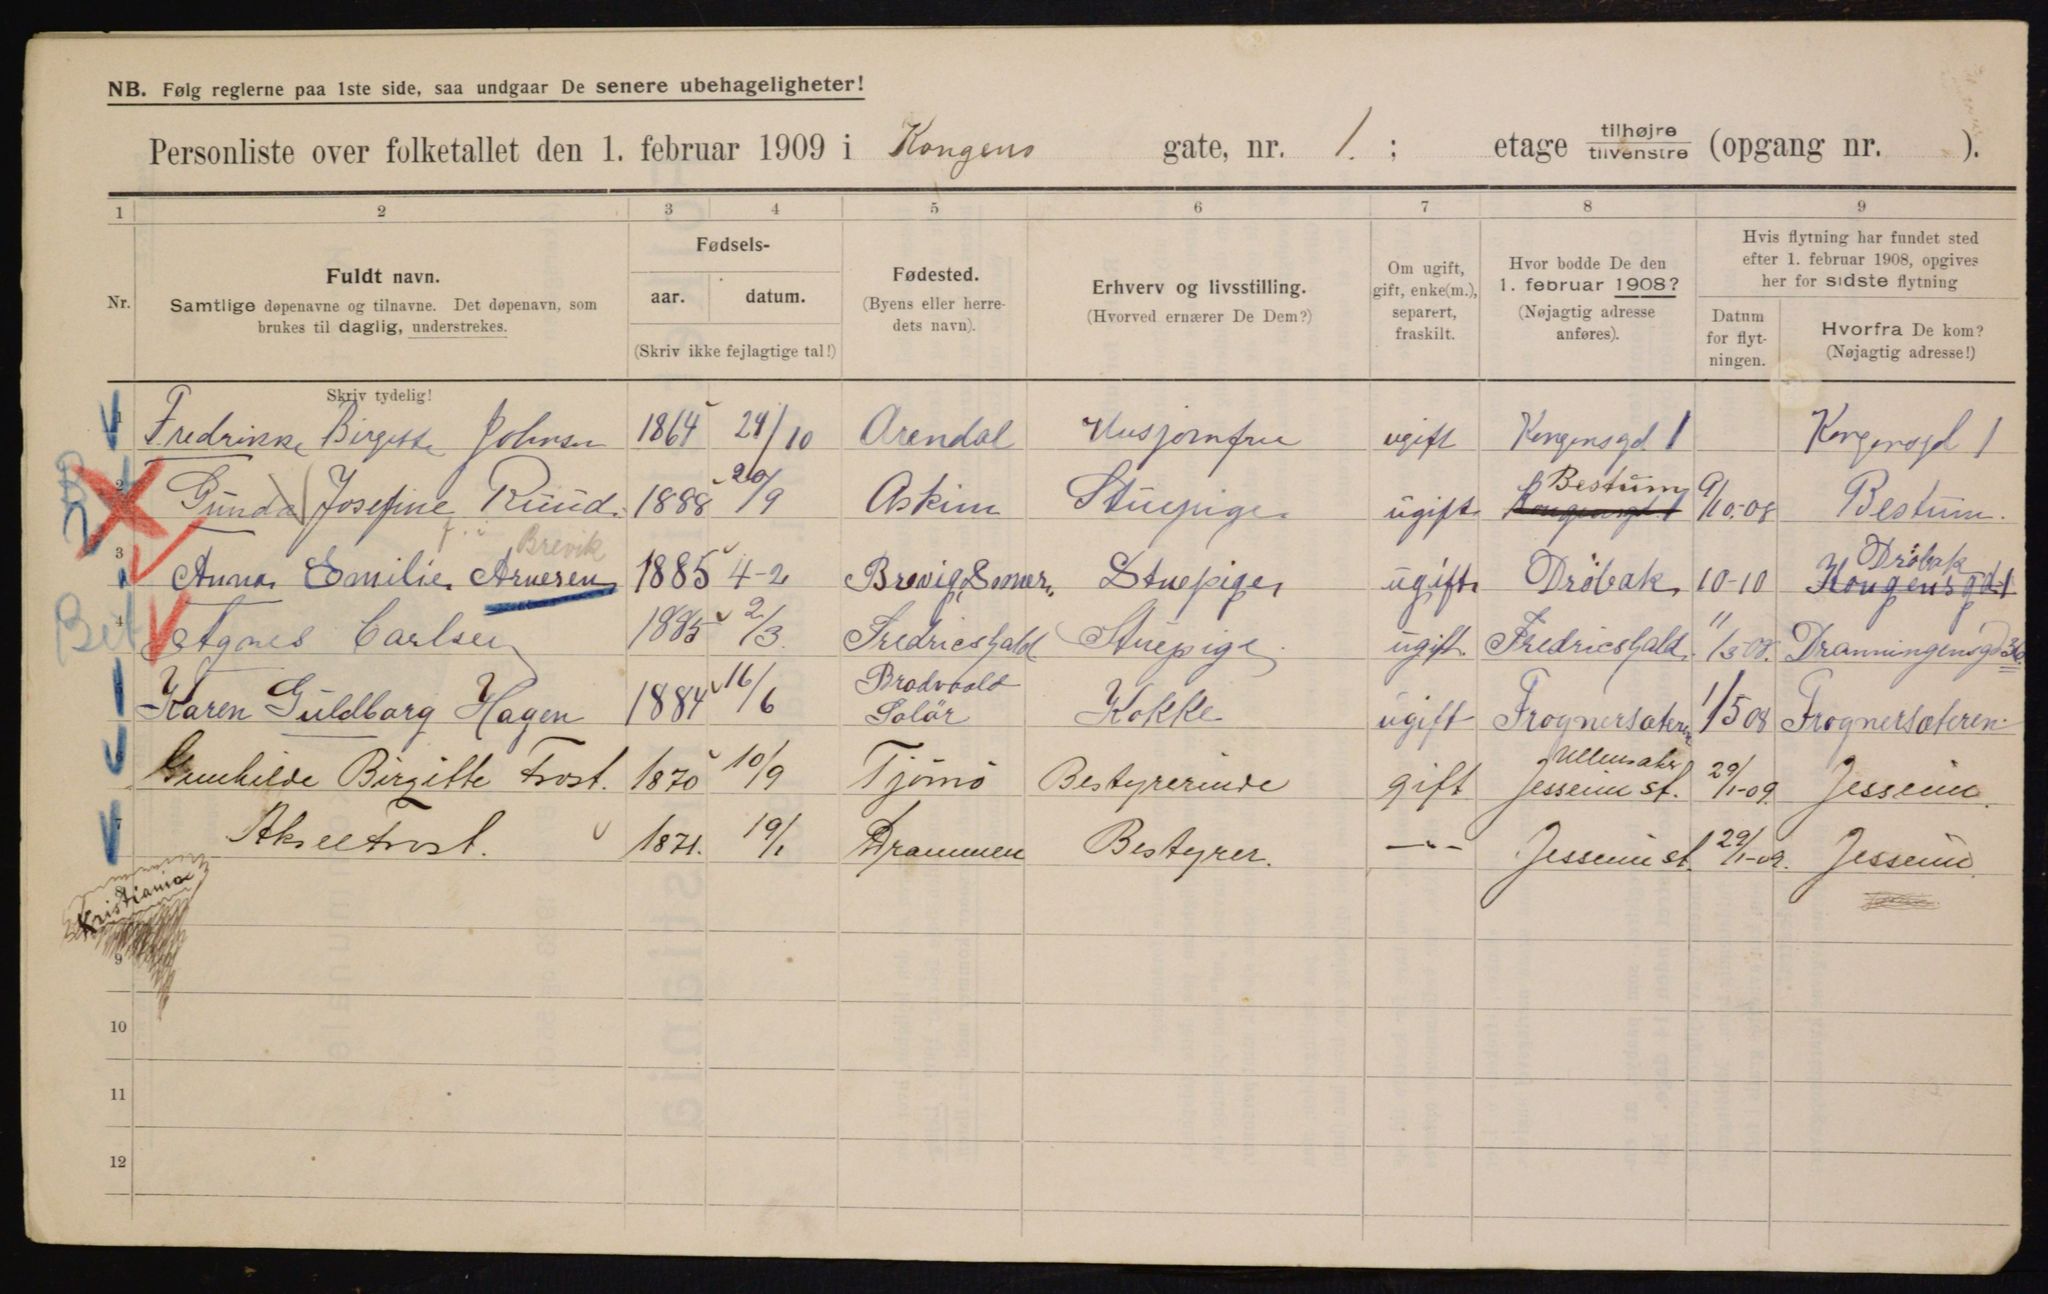 NB. Følg reglerne paa 1ste side, saa undgaar De senere ubehageligheter!
Personliste over folketallet den 1. februar 1909 i Kongens gate, nr. 1. ; etage tilhøjre tilvenstre (opgang nr. ).
1 2 3 4 5 6 7 8 9
Nr.
Fuldt navn.
Samtlige døpenavne og tilnavne. Det døpenavn, som
brukes til daglig, understrekes.
Skriv tydelig!
Fødsels-
aar. datum.
(Skriv ikke fejlagtige tal!)
Fødested.
(Byens eller herre-
dets navn).
Erhverv og livsstilling.
(Hvorved ernærer De Dem?)
Om ugift,
gift, enke(m.),
separert,
fraskilt.
Hvor bodde De den
1. februar 1908?
(Nøjagtig adresse
anføres).
Hvis flytning har fundet sted
efter 1. februar 1908, opgives
her for sidste flytning
Datum
for flyt-
ningen.
Hvorfra De kom?
(Nøjagtig adresse!)
1 Fredrikke Birgitte Johnsen 1864 24/10 Arendal Husjomfru ugift Kongensgd. 1 Kongensgd 1
2 Gunda Josefine Ruud. 1888 20/9 Askim Stuepige ugift Bestum Kongensgt 1 9/10-08 Bestum.
Brevik
3 Anna Emilie Arnesen 1885 4-2 Brevig, Stuepige ugift Dröbak 10-10 Dröbak Kongensgd. 1
Bet
4 Agnes Carlsen 1885 2/3. Fredrieshald Stuepige ugift. Fredrieshald. 11/3-08. Dranningensgd 36
Karen Guldborg Hagen 1884 16/6 Brodvold Solör Kokke ugift Frognersæteren 1/5 08 Frognersæteren
6 Gunhilde Birgitte Frost. 1870 10/9 Tjömö Bestyrerinde gift Ullensaker Jesseim st. 29/1-09. Jesseim.
7 Aksel Frost. 1871. 19/1 Drammen Bestyrer. -"- Jesseim st. 29/1-09. Jesseim.
8
Kristiania
9
10
11
12